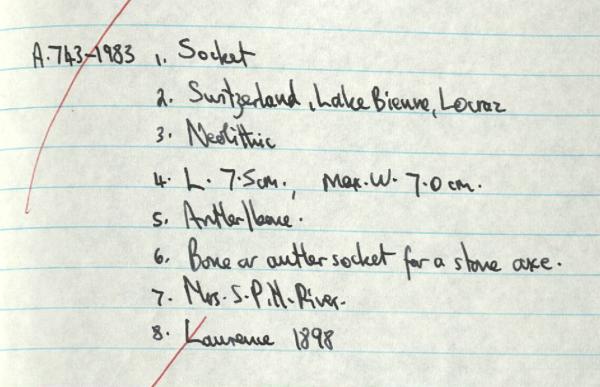 A.743-1983 1. Socket
2. Switzerland, Lake Bienne, Locraz
3. Neolithic
4. L. 7.5cm., Max.W. 7.0cm.
5. Antler/bone.
6. Bone or antler socket for a stone axe.
7. Mrs. S. Pitt-River.
8. Laurence 1898